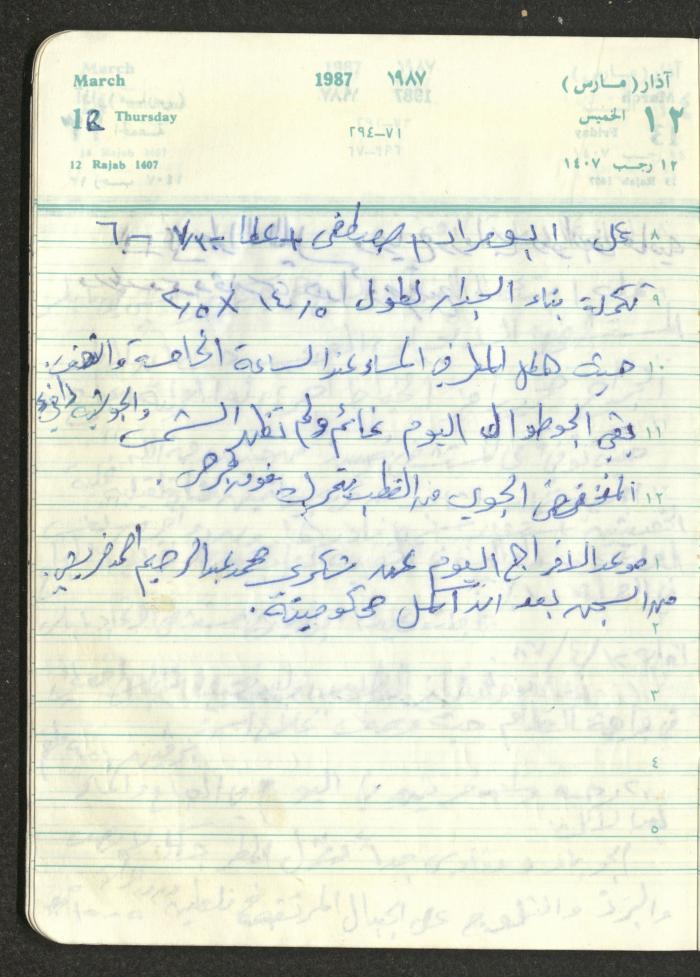 March 1987 ١٩٨٧ آذار (مارس)
12 Thursday ٧١-٢٩٤ الخميس ١٢
12 Rajab 1407 ١٢ رجب ١٤٠٧
٨ عمل اليوم مراد + مصطفى + عطا
٩ تكملة بناء الجدار لطول
١٠ حيث هطل المطر في المساء عند الساعة الخامسة والنصف.
والجو
١١ بقي الجو طوال اليوم غائم ولم تظهر الشمس
١٢ المنخفض الجوي من القطب يتحرك نحو
١ موعد الافراج اليوم عن شكري محمد عبد الرحيم احمد
من السجن بعد ان أكمل محكوميته.
٢
٣
٤
٥